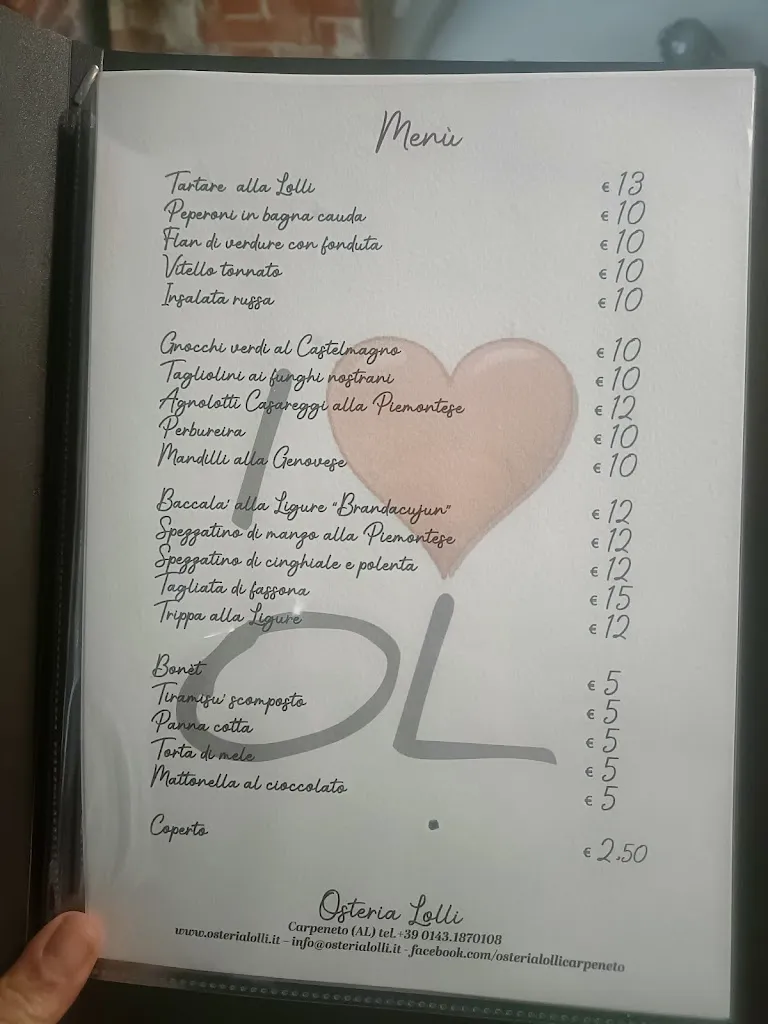 Menù
Tartare alla Lolli € 13
Peperoni in bagna cauda € 10
Flan di verdure con fonduta € 10
Vitello tonnato € 10
Insalata russa € 10
Gnocchi verdi al Castelmagno € 10
Tagliolini ai funghi nostrani € 10
Agnolotti Casareggi alla Piemontese € 12
Perbureira € 10
Mandilli alla Genovese € 10
Baccala' alla Ligure "Brandacujun" € 12
Spezzatino di manzo alla Piemontese € 12
Spezzatino di cinghiale e polenta € 12
Tagliata di fassona € 15
Trippa alla Ligure € 12
Bonèt € 5
Tiramisu' scomposto € 5
Panna cotta € 5
Torta di mele € 5
Mattonella al cioccolato € 5
Coperto € 2.50
I
OL.
Osteria Lolli
Carpeneto (AL) tel.+39 0143.1870108
www.osterialolli.it – info@osterialolli.it - facebook.com/osterialollicarpeneto